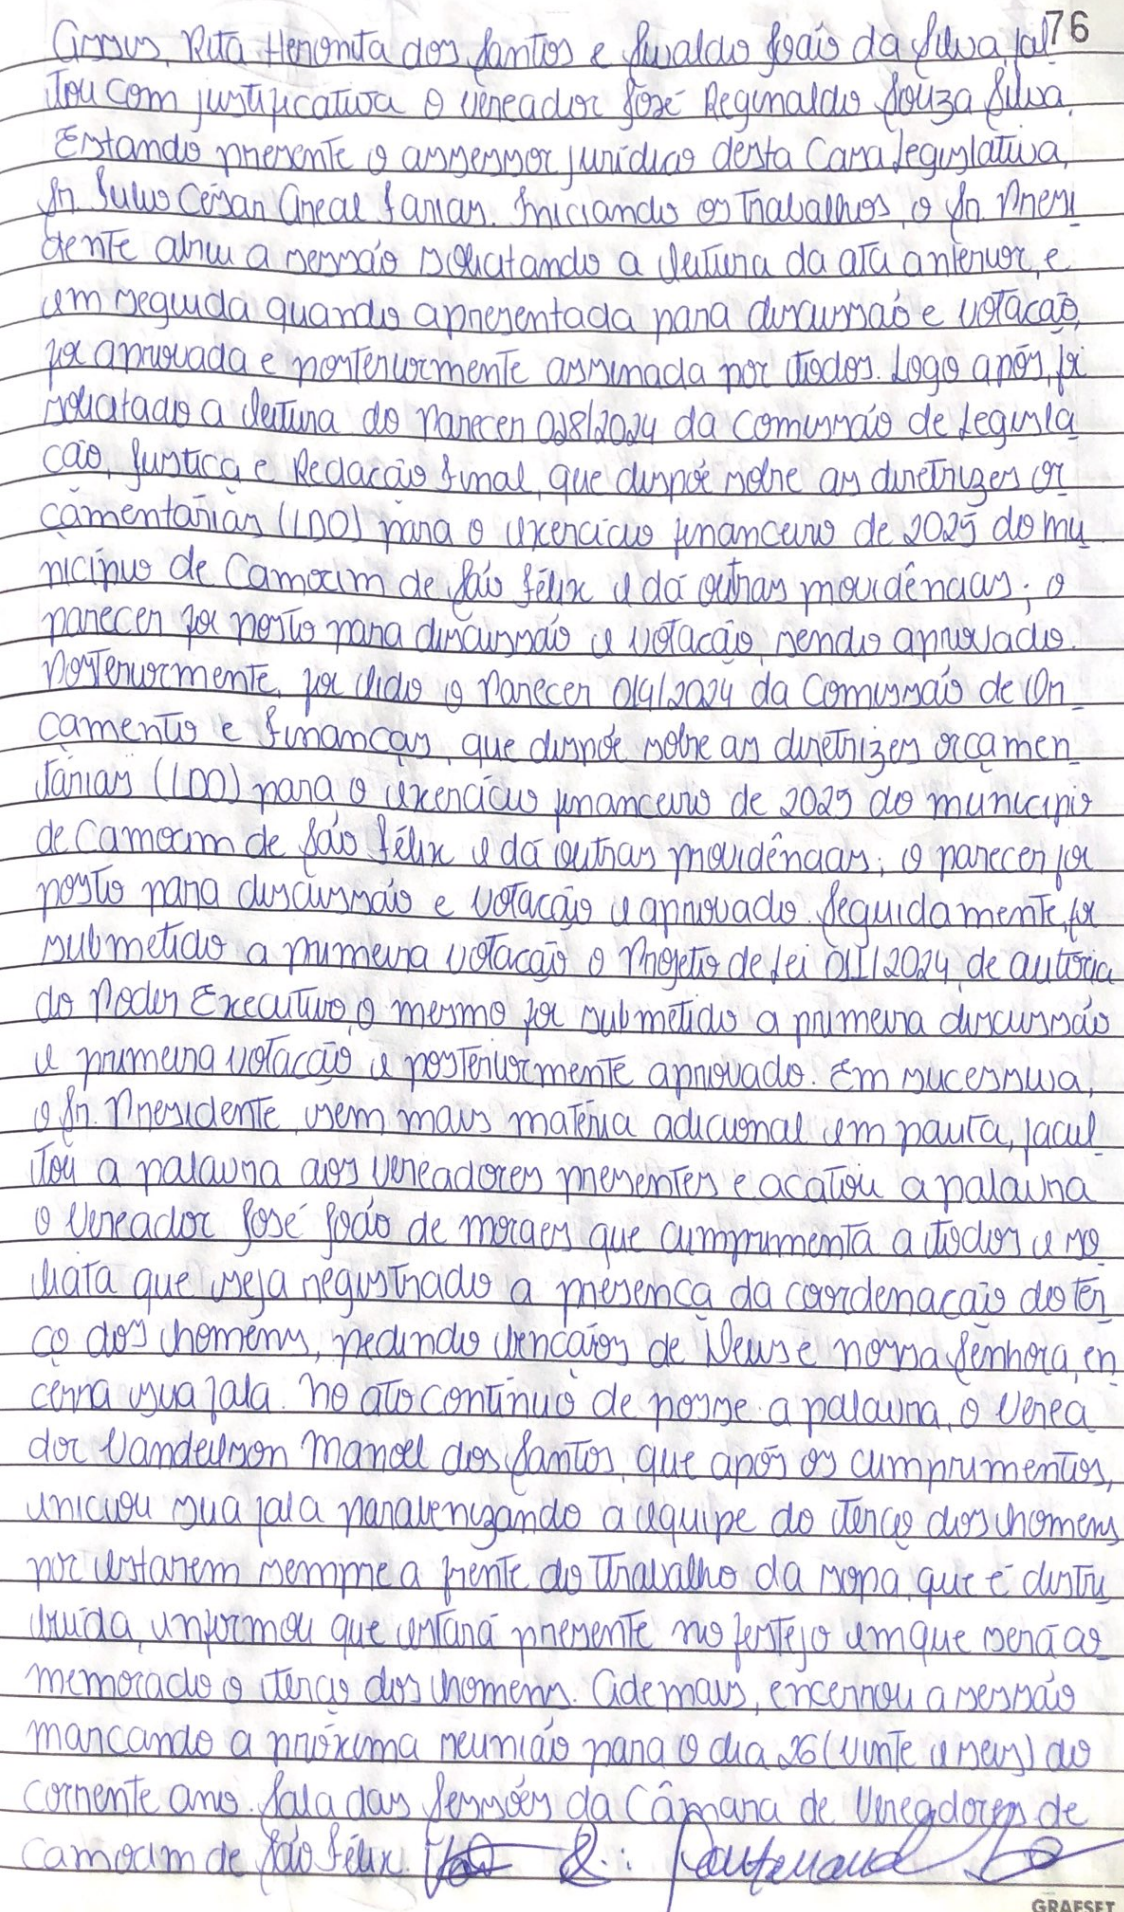 76
Assis, Rita Heronita dos Santos e Sivaldo João da Silva, fal
tou com justificativa o vereador José Reginaldo Souza Silva.
Estando presente o assessor jurídico desta Casa Legislativa,
Sr. Julio César Areal Farias. Iniciando os trabalhos, o Sr. Presi
dente abriu a sessão solicitando a leitura da ata anterior, e
em seguida quando apresentada para discussão e votação,
foi aprovada e posteriormente assinada por todos. Logo após, foi
solicitado a leitura do Parecer 028/2024 da Comissão de Legisla
ção, Justiça e Redação Final, que dispõe sobre as diretrizes or
çamentárias (LDO) para o exercício financeiro de 2025 do mu
nicípio de Camocim de São Félix e dá outras providências; o
parecer foi posto para discussão e votação, sendo aprovado.
Posteriormente, foi lido o Parecer 014/2024 da Comissão de Or
çamento e Finanças, que dispõe sobre as diretrizes orçamen
tárias (LDO) para o exercício financeiro de 2025 do município
de Camocim de São Félix e dá outras providências; o parecer foi
posto para discussão e votação e aprovado. Seguidamente, foi
submetido a primeira votação o Projeto de Lei 011/2024, de autoria
do Poder Executivo, o mesmo foi submetido a primeira discussão
e primeira votação e posteriormente aprovado. Em sucessiva,
o Sr. Presidente, sem mais matéria adicional em pauta, facul
tou a palavra aos vereadores presentes e acatou a palavra
o Vereador José João de Moraes que cumprimenta a todos e so
licita que seja registrado a presença da coordenação do ter
ço dos homens, pedindo bênçãos de Deus e nossa Senhora, en
cerra sua fala. No ato contínuo de posse a palavra, o Verea
dor Vandeilson Manoel dos Santos, que após os cumprimentos,
iniciou sua fala parabenizando a equipe do terço dos homens
por estarem sempre a frente do trabalho da sopa que é distri
buída, informou que estará presente no festejo em que será co
memorado o terço dos homens. Ademais, encerrou a sessão
marcando a próxima reunião para o dia 26 (vinte e seis) do
corrente ano. Sala das Sessões da Câmara de Vereadores de
Camocim de São Félix.
GRAFSET